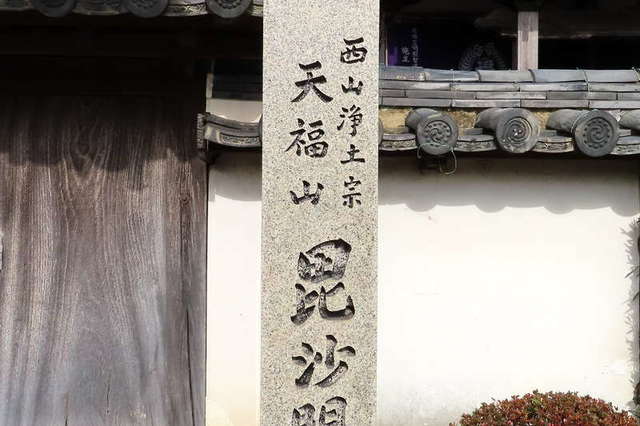 西山浄土宗
天福山
毘沙門